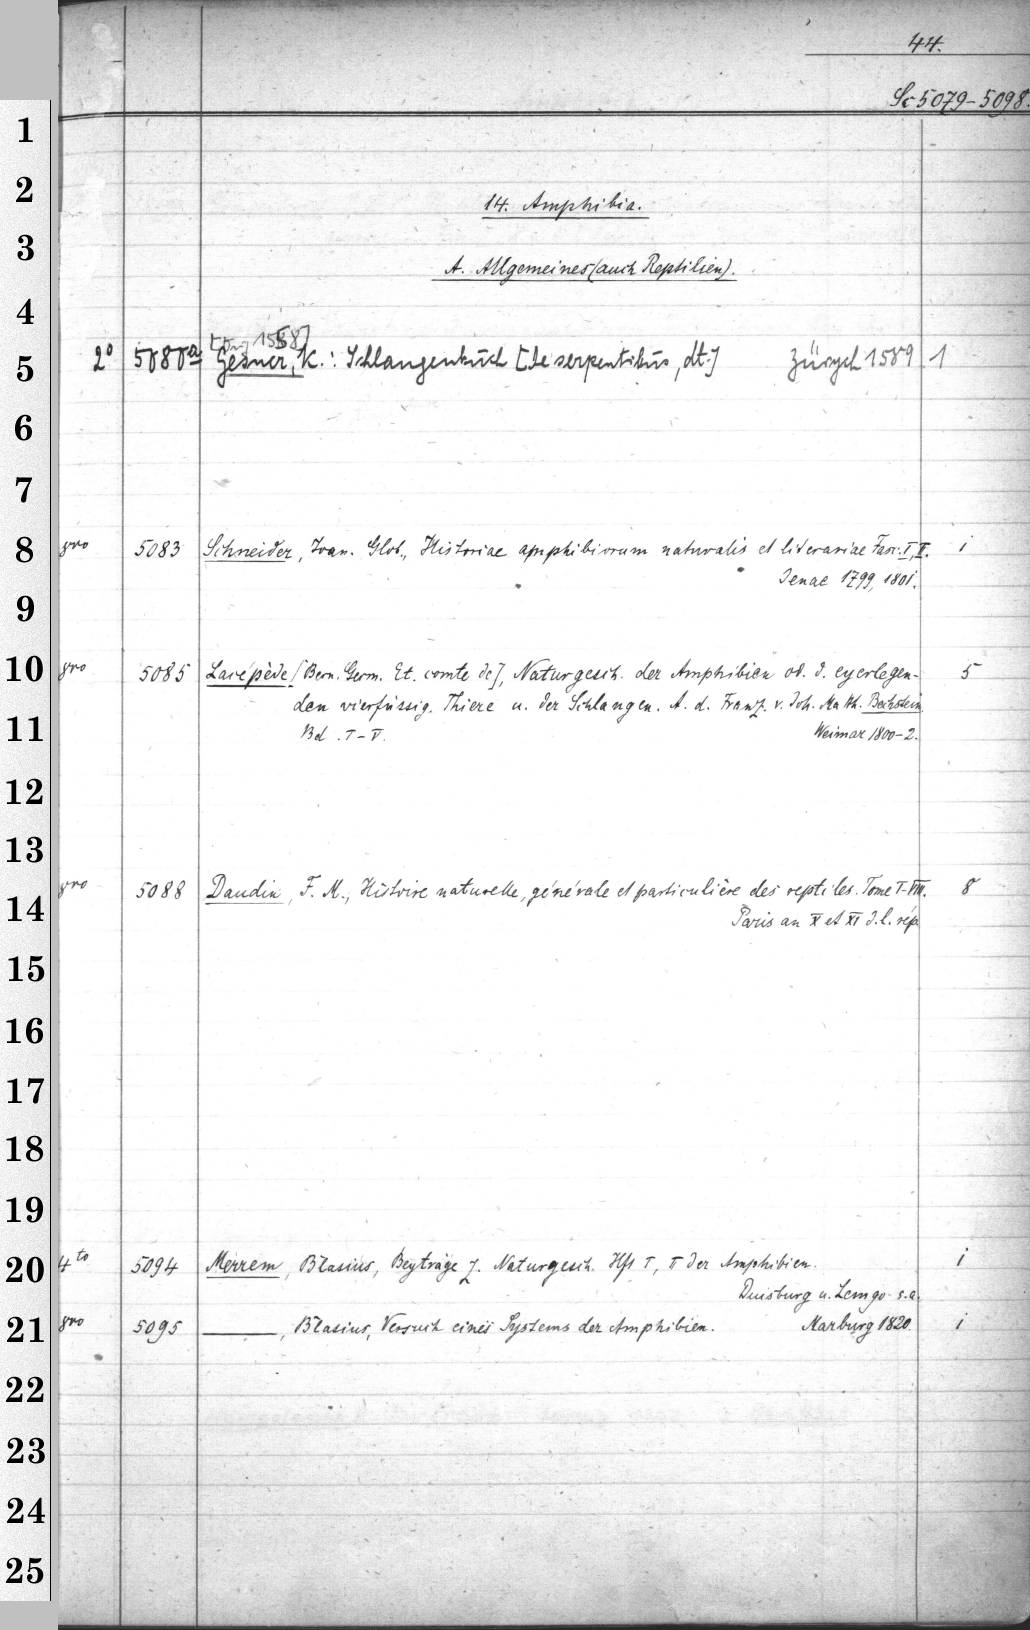 44.
Sc 5079-5098.
1
2
14. Amphibia.
3
A. Allgemeines (auch Reptilien).
4
1558]
5 2° 5080a Gesner, K.: Schlangenbuch [De serpentibus, dt.] Zürych 1589 1
6
7
8 8vo 5083 Schneider, Joan. Glob., Historiae amphibiorum naturalis et literariae Fasc. I, II. 1
Jenae 1799, 1801.
9
10 8vo 5085 Lacépède [Bern. Germ. Et. comte de], Naturgesch. der Amphibien od. d. eyerlegen- 5
den vierfüssig. Thiere u. der Schlangen. A. d. Franz. v. Joh. Matth. Bechstein.
11 Bd. I-V. Weimar 1800-2.
12
13
14 8vo 5088 Daudin, F. M., Histoire naturelle, générale et particulière des reptiles. Tome I-VIII. 8
Paris an X et XI d. l. rép.
15
16
17
18
19
20 4to 5094 Merrem, Blasius, Beyträge z. Naturgesch. Hft I, II der Amphibien. 1
Duisburg u. Lemgo s.a.
21 8vo 5095 ———, Blasius, Versuch eines Systems der Amphibien. Marburg 1820. 1
22
23
24
25